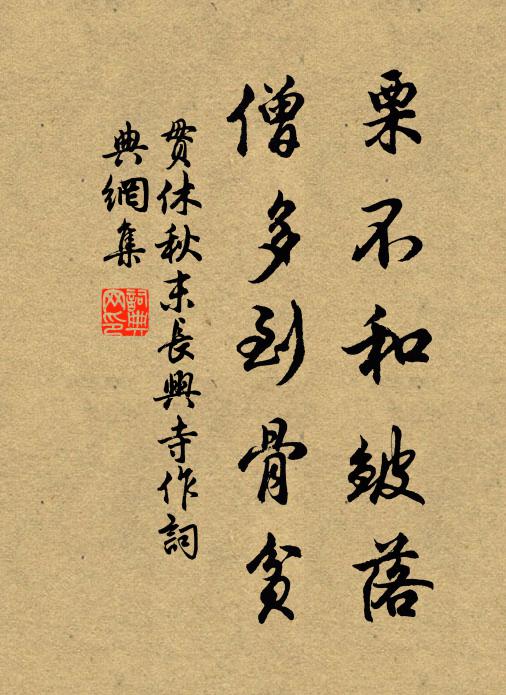 栗不和皴落
僧多到骨貧
貫休秋末長興寺作詞
典網集
詞典
网印